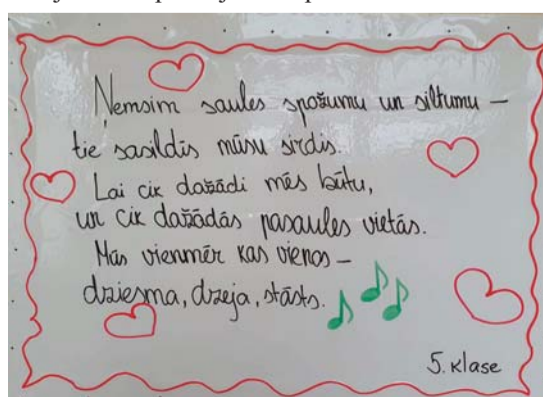 Ņemsim saules spožumu un siltumu –
tie sasildīs mūsu sirdis.
Lai cik dažādi mēs būtu,
un cik dažādās pasaules vietās.
Mūs vienmēr kas vienos –
dziesma, dzeja, stāsts.
5. klase